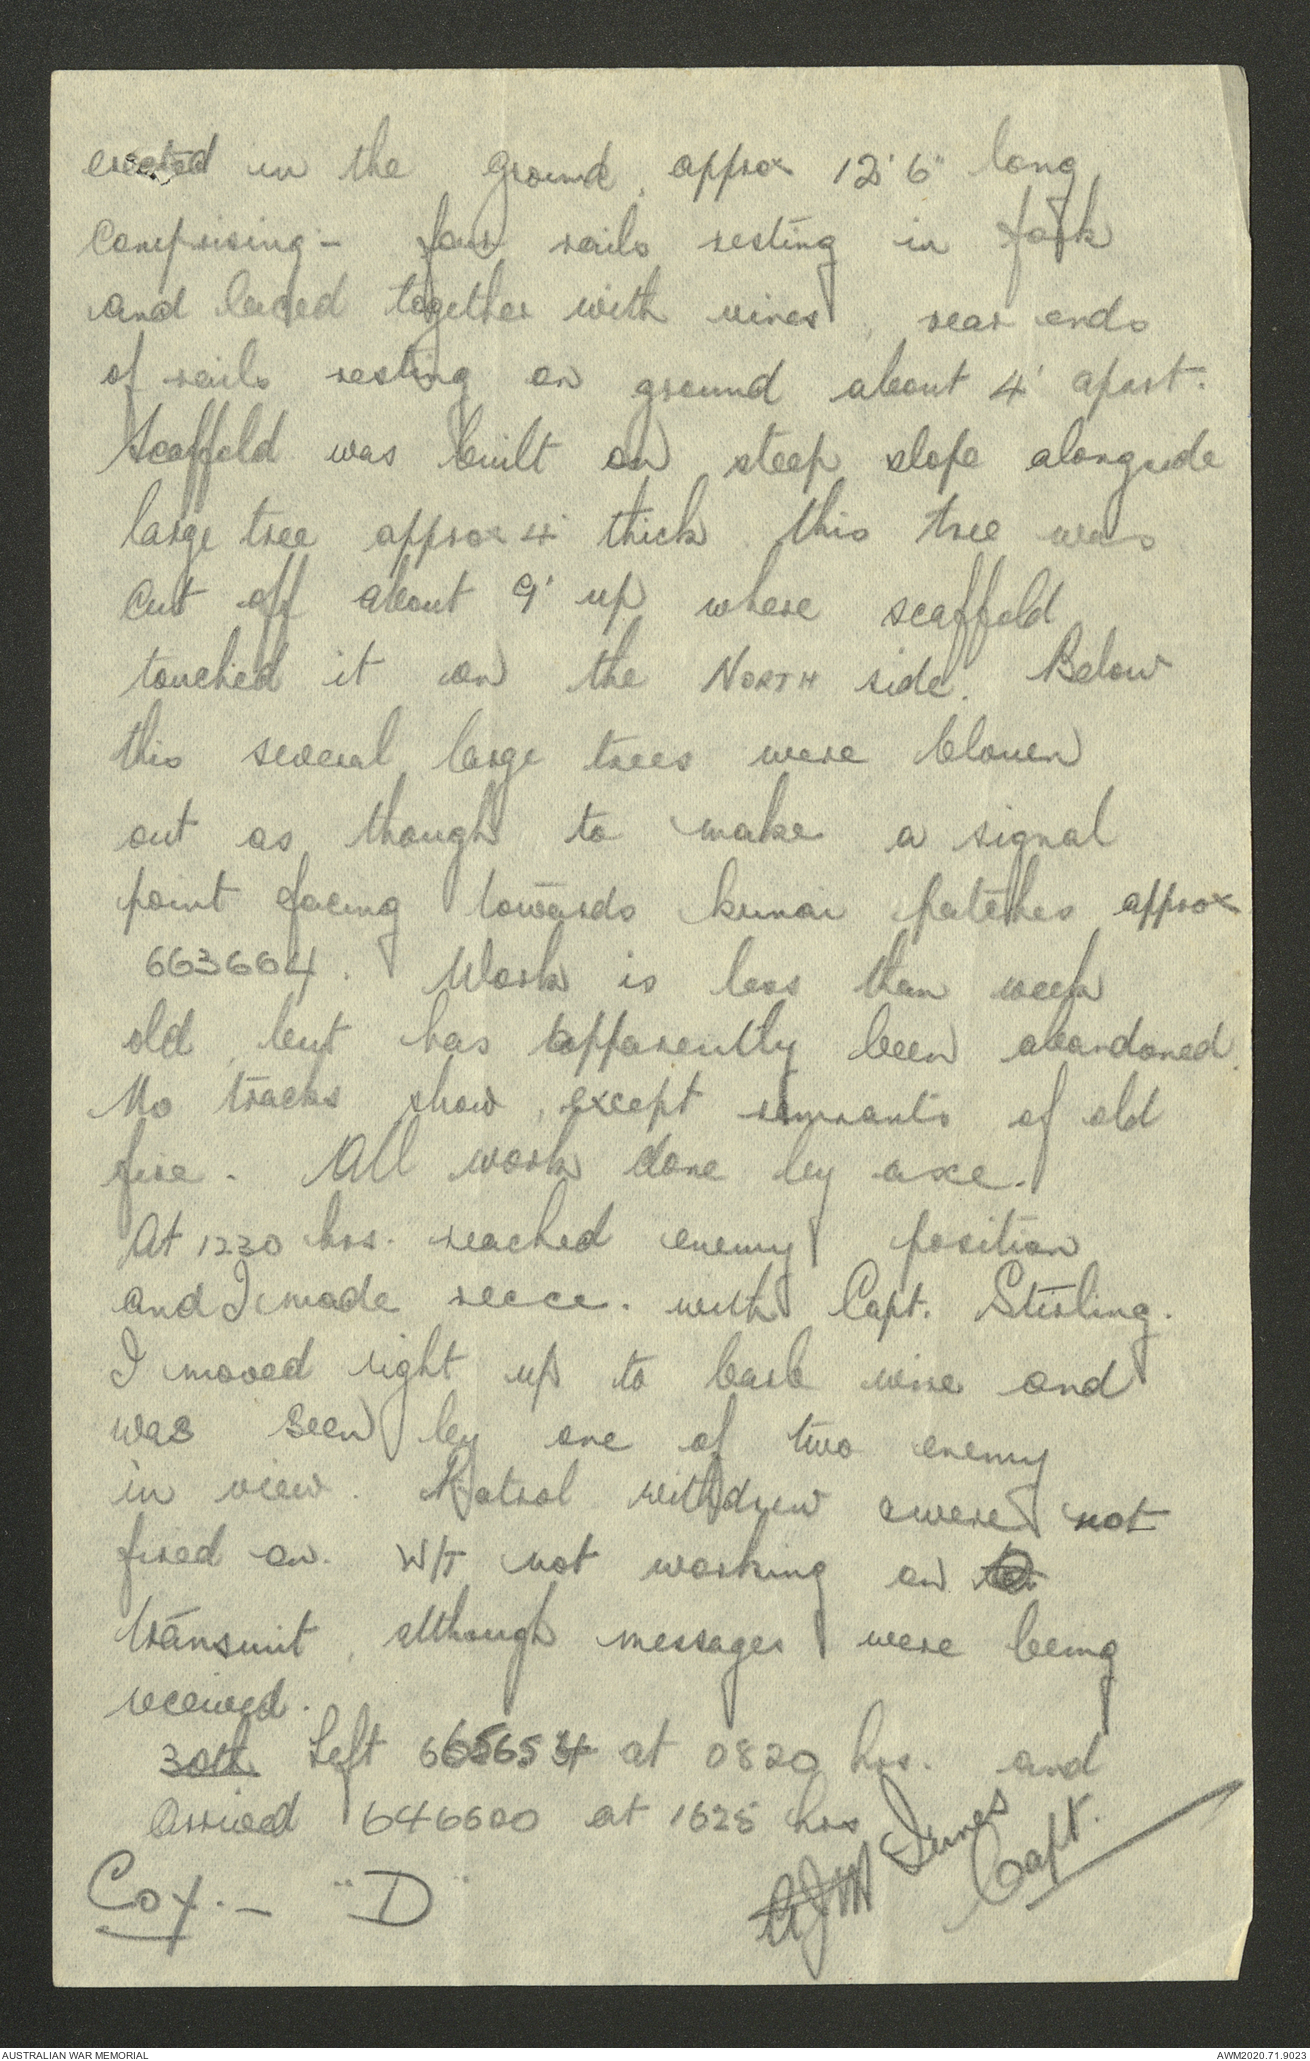 erected in the ground, approx 12'6" long
comprising:- four rails resting in fork
and laced together with vines, rear ends
of rails resting on ground about 4' apart.
Scaffold was built on steep slope alongside
large tree approx 4' thick. This tree was
cut off about 9' up where scaffold
touched it on the NORTH side. Below
this several large trees were blown
out as though to make a signal
point facing towards kunai patches approx
663664. Work is less than week
old, but has apparently been abandoned.
No tracks show, except remnants of old
fire. All work done by axe.
At 1230 hrs. reached enemy position
and I made recce. with Capt. Stirling.
I moved right up to barb wire and
was seen by one of two enemy
in view. Patrol withdrew & were not
fired on. W/T not working on
transmit, although messages were being
received.
30th Left 665654 at 0820 hrs. and
arrived 646600 at 1625 hrs
Coy.- "D"
Capt.
AUSTRALIAN WAR MEMORIAL
AWM2020.71.9023